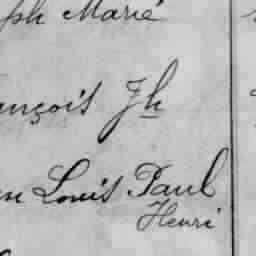 ph Marie
nçois Jh
n Louis Paul
Henri